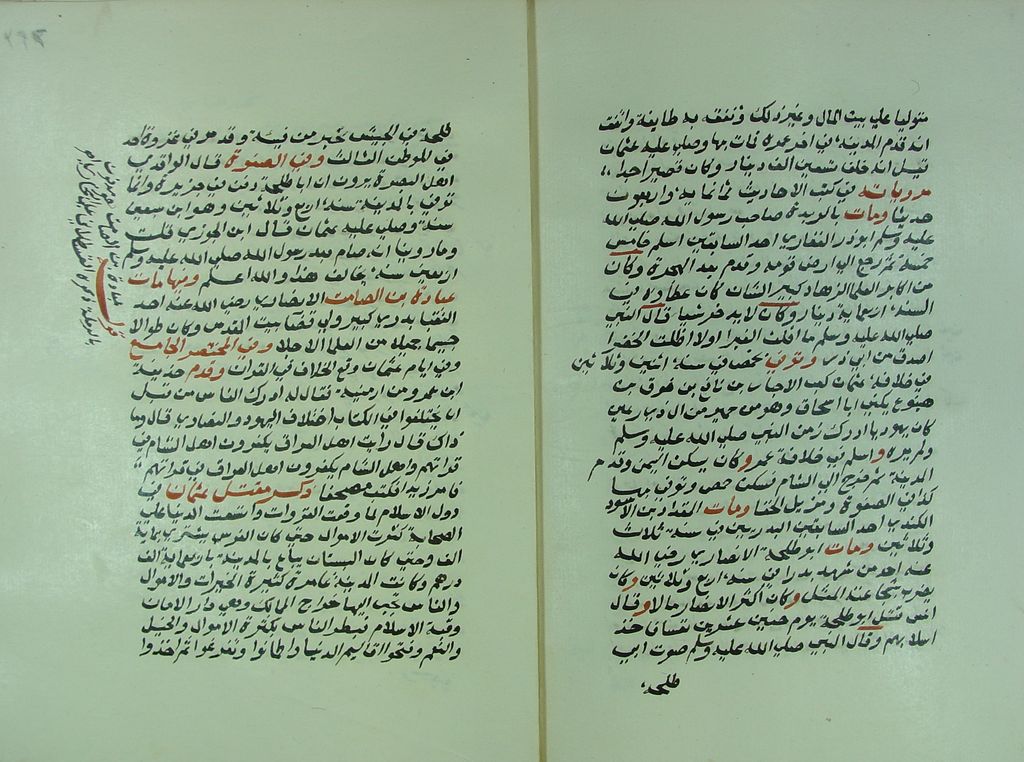 متوليا علي بيت المال وغير ذلك وتفقه به طايفة واتفق
انه قدم المدينة في اخر عمره فمات بها وصلي عليه عثمان
قيل انه خلف تسعين الف دينار وكان قصيرا جدا
مروياته في كتب الاحاديث ثمانماية واربعون
حديثا ومات بالربدة صاحب رسول الله صلي الله
عليه وسلم ابوذر الغفاري احد السابقين اسلم خامس
خمسة ثم رجع الي ارض قومه وقدم بعد الهجرة وكان
من اكابر العلما الزهاد كبير الشان كان عطاوه في
السنة اربعماية دينار وكان لا يدخر شيا قال النبي
صلي الله عليه وسلم ما اقلت الغبرا ولا اظلت الخضرا
اصدق من ابي ذر وتوفي بحمص في سنة اثنين وثلاثين
في خلافة عثمان كعب الاحبار بن ماتع بن
هيتوع يكني ابا اسحاق وهو من حمير من ال ذي رعين
كان يهوديا ادرك زمن النبي صلي الله عليه وسلم
ولم يره واسلم في خلافة عمر وكان يسكن اليمن وقدم
المدينة ثم خرج الي الشام فسكن حمص وتوفي بها
كذا في الصفوة ومزيل الخفا ومات المقداد بن الاسود
الكندي احد السابقين البدريين في سنة ثلاث
وثلاثين ومات ابو طلحة الانصاري رضي الله
عنه احد من شهد بدرا في سنة اربع وثلاثين وكان
يضرب بشجاعته المثل وكان اكثر الانصار مالا وقال
انس قتل ابو طلحة يوم حنين عشرين نفسا واخذ
اسلابهم وقال النبي صلي الله عليه وسلم صوت ابي
طلحة
طلحة في الجيش خير من فية وقد مر في غزوة احد
في الموطن الثالث وفي الصفوة قال الواقدي
اهل البصرة يروون ان ابا طلحة دفن في جزيرة وانما
توفي بالمدينة سنة اربع وثلاثين وهو ابن سبعين
سنة وصلي عليه عثمان قال ابن الجوزي قلت
وما روينا انه صام بعد رسول الله صلي الله عليه وسلم
اربعين سنة يخالف هذا والله اعلم وفيها مات
عبادة بن الصامت الانصاري رضي الله عنه احد
النقبا بدري كبير ولي قضا بيت المقدس وكان طوالا
جسيما جميلا من العلما الاجلا وفي المختصر الجامع
وفي ايام عثمان وقع الخلاف في القران وقدم حذيفة
من ارمينية فقال له ادرك الناس من قبل
ان يختلفوا في الكتاب اختلاف اليهود والنصاري قال وما
ذاك قال رايت اهل العراق يكفرون اهل الشام في
قراتهم واهل الشام يكفرون اهل العراق في قراتهم
فامر زيد افكتب مصحفا ذكر مقتل عثمان في
دول الاسلام لما وقعت الفتوحات واتسعت الدنيا علي
الصحابة كثرت الاموال حتي كان الفرس يشتري بماية
الف وحتي كان البستان يباع بالمدينة باربعماية الف
درهم وكانت المدينة عامرة كثيرة الخيرات والاموال
والناس يجبي اليها خراج الممالك وهي دار الامان
وقبة الاسلام فبطر الناس بكثرة الاموال والخيل
والنعم وفتحوا اقاليم الدنيا واطمانوا وتفرغوا ثم اخذوا